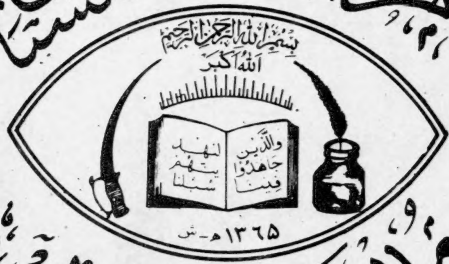 بسم الله الرحمن الرحيم
الله اکبر
والذین
جاهدوا
فینا
لنهد
ینهم
سبلنا
۱۳۶۵ هـ - ش